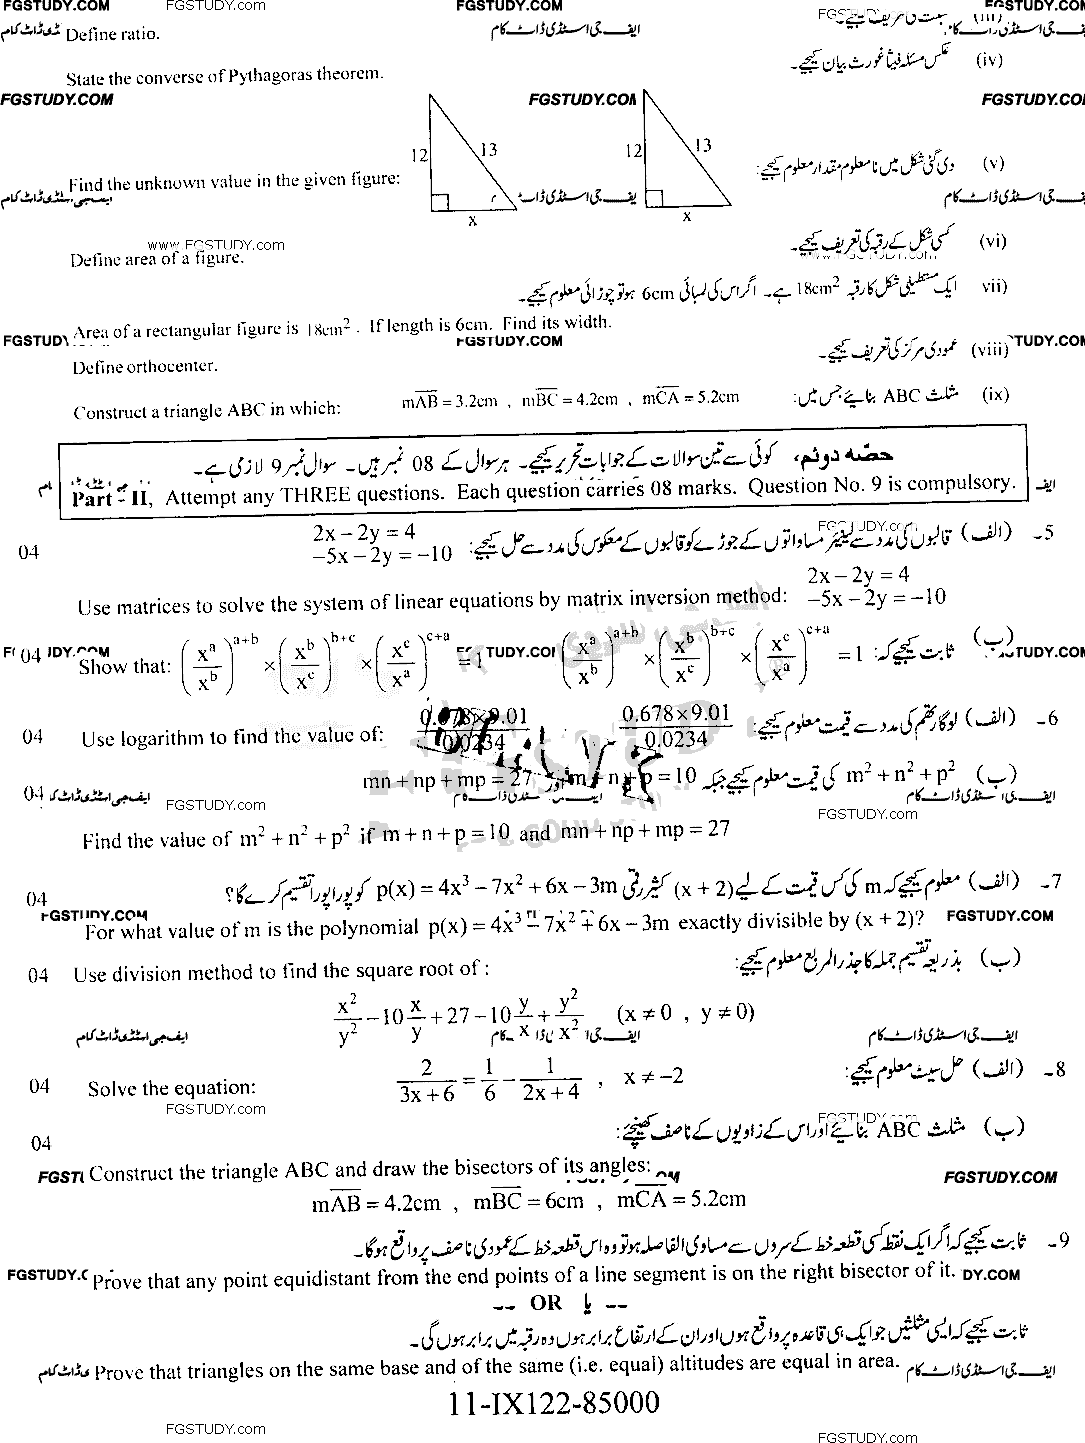 FGSTUDY.COM FGSTUDY.com FGSTUDY.COM FGSTUDY.com FGSTUDY.COM
Define ratio. ایف جی اسٹڈی ڈاٹ کام (iii)
State the converse of Pythagoras theorem. عکس مسئلہ فیثاغورث بیان کیجیے۔ (iv)
FGSTUDY.COM FGSTUDY.COM FGSTUDY.COM
12 13 12 13
Find the unknown value in the given figure: دی گئی شکل میں نامعلوم مقدار معلوم کیجیے: (v)
ایف جی اسٹڈی ڈاٹ کام
x x
www.FGSTUDY.com
Define area of a figure. کسی شکل کے رقبہ کی تعریف کیجیے۔ (vi)
ایک مستطیلی شکل کا رقبہ 18cm² ہے۔ اگر اس کی لمبائی 6cm ہو تو چوڑائی معلوم کیجیے۔ vii)
Area of a rectangular figure is 18cm². If length is 6cm. Find its width.
FGSTUDY FGSTUDY.COM TUDY.COM
Define orthocenter. عمودی مرکز کی تعریف کیجیے۔ (viii)
Construct a triangle ABC in which: mAB = 3.2cm , mBC = 4.2cm , mCA = 5.2cm مثلث ABC بنائیے جس میں: (ix)
حصّہ دوئم، کوئی سے تین سوالات کے جوابات تحریر کیجیے۔ ہر سوال کے 08 نمبر ہیں۔ سوال نمبر 9 لازمی ہے۔
Part - II, Attempt any THREE questions. Each question carries 08 marks. Question No. 9 is compulsory.
04 2x – 2y = 4
–5x – 2y = –10 قالبوں کی مدد سے لینیئر مساواتوں کے جوڑے کو قالبوں کے معکوس کی مدد سے حل کیجیے: (الف) 5۔
Use matrices to solve the system of linear equations by matrix inversion method: 2x – 2y = 4
–5x – 2y = –10
04 Show that: (x^a/x^b)^(a+b) × (x^b/x^c)^(b+c) × (x^c/x^a)^(c+a) = 1 (x^a/x^b)^(a+b) × (x^b/x^c)^(b+c) × (x^c/x^a)^(c+a) = 1 ثابت کیجیے کہ: (ب)
04 Use logarithm to find the value of: 0.678×9.01/0.0234 0.678×9.01/0.0234 لوگارتھم کی مدد سے قیمت معلوم کیجیے: (الف) 6۔
mn + np + mp = 27 اور m + n + p = 10 کی قیمت معلوم کیجیے جبکہ m² + n² + p² (ب)
04 ایف جی اسٹڈی ڈاٹ کام FGSTUDY.com ایف جی اسٹڈی ڈاٹ کام
FGSTUDY.com
Find the value of m² + n² + p² if m + n + p = 10 and mn + np + mp = 27
04 معلوم کیجیے کہ m کی کس قیمت کے لیے (x + 2) کثیر رقمی p(x) = 4x³ – 7x² + 6x – 3m کو پورا پورا تقسیم کرے گا؟ (الف) 7۔
FGSTUDY.COM For what value of m is the polynomial p(x) = 4x³ – 7x² + 6x – 3m exactly divisible by (x + 2)? FGSTUDY.COM
04 Use division method to find the square root of : بذریعہ تقسیم جملہ کا جذر المربع معلوم کیجیے: (ب)
x²/y² – 10 x/y + 27 – 10 y/x + y²/x² (x ≠ 0 , y ≠ 0)
ایف جی اسٹڈی ڈاٹ کام ایف جی اسٹڈی ڈاٹ کام
04 Solve the equation: 2/(3x + 6) = 1/6 – 1/(2x + 4) , x ≠ –2 حل سیٹ معلوم کیجیے: (الف) 8۔
FGSTUDY.com FGSTUDY.com
04 مثلث ABC بنائیے اور اس کے زاویوں کے ناصف کھینچئے: (ب)
Construct the triangle ABC and draw the bisectors of its angles: FGSTUDY.COM
mAB = 4.2cm , mBC = 6cm , mCA = 5.2cm
ثابت کیجیے کہ اگر ایک نقطہ کسی قطعہ خط کے سروں سے مساوی الفاصلہ ہو تو وہ اس قطعہ خط کے عمودی ناصف پر واقع ہوگا۔ 9۔
FGSTUDY.C Prove that any point equidistant from the end points of a line segment is on the right bisector of it. DY.COM
-- OR یا --
ثابت کیجیے کہ ایسی مثلثیں جو ایک ہی قاعدہ پر واقع ہوں اور ان کے ارتفاع برابر ہوں وہ رقبہ میں برابر ہوں گی۔
Prove that triangles on the same base and of the same (i.e. equal) altitudes are equal in area. ایف جی اسٹڈی ڈاٹ کام
11-IX122-85000
FGSTUDY.com FGSTUDY.com